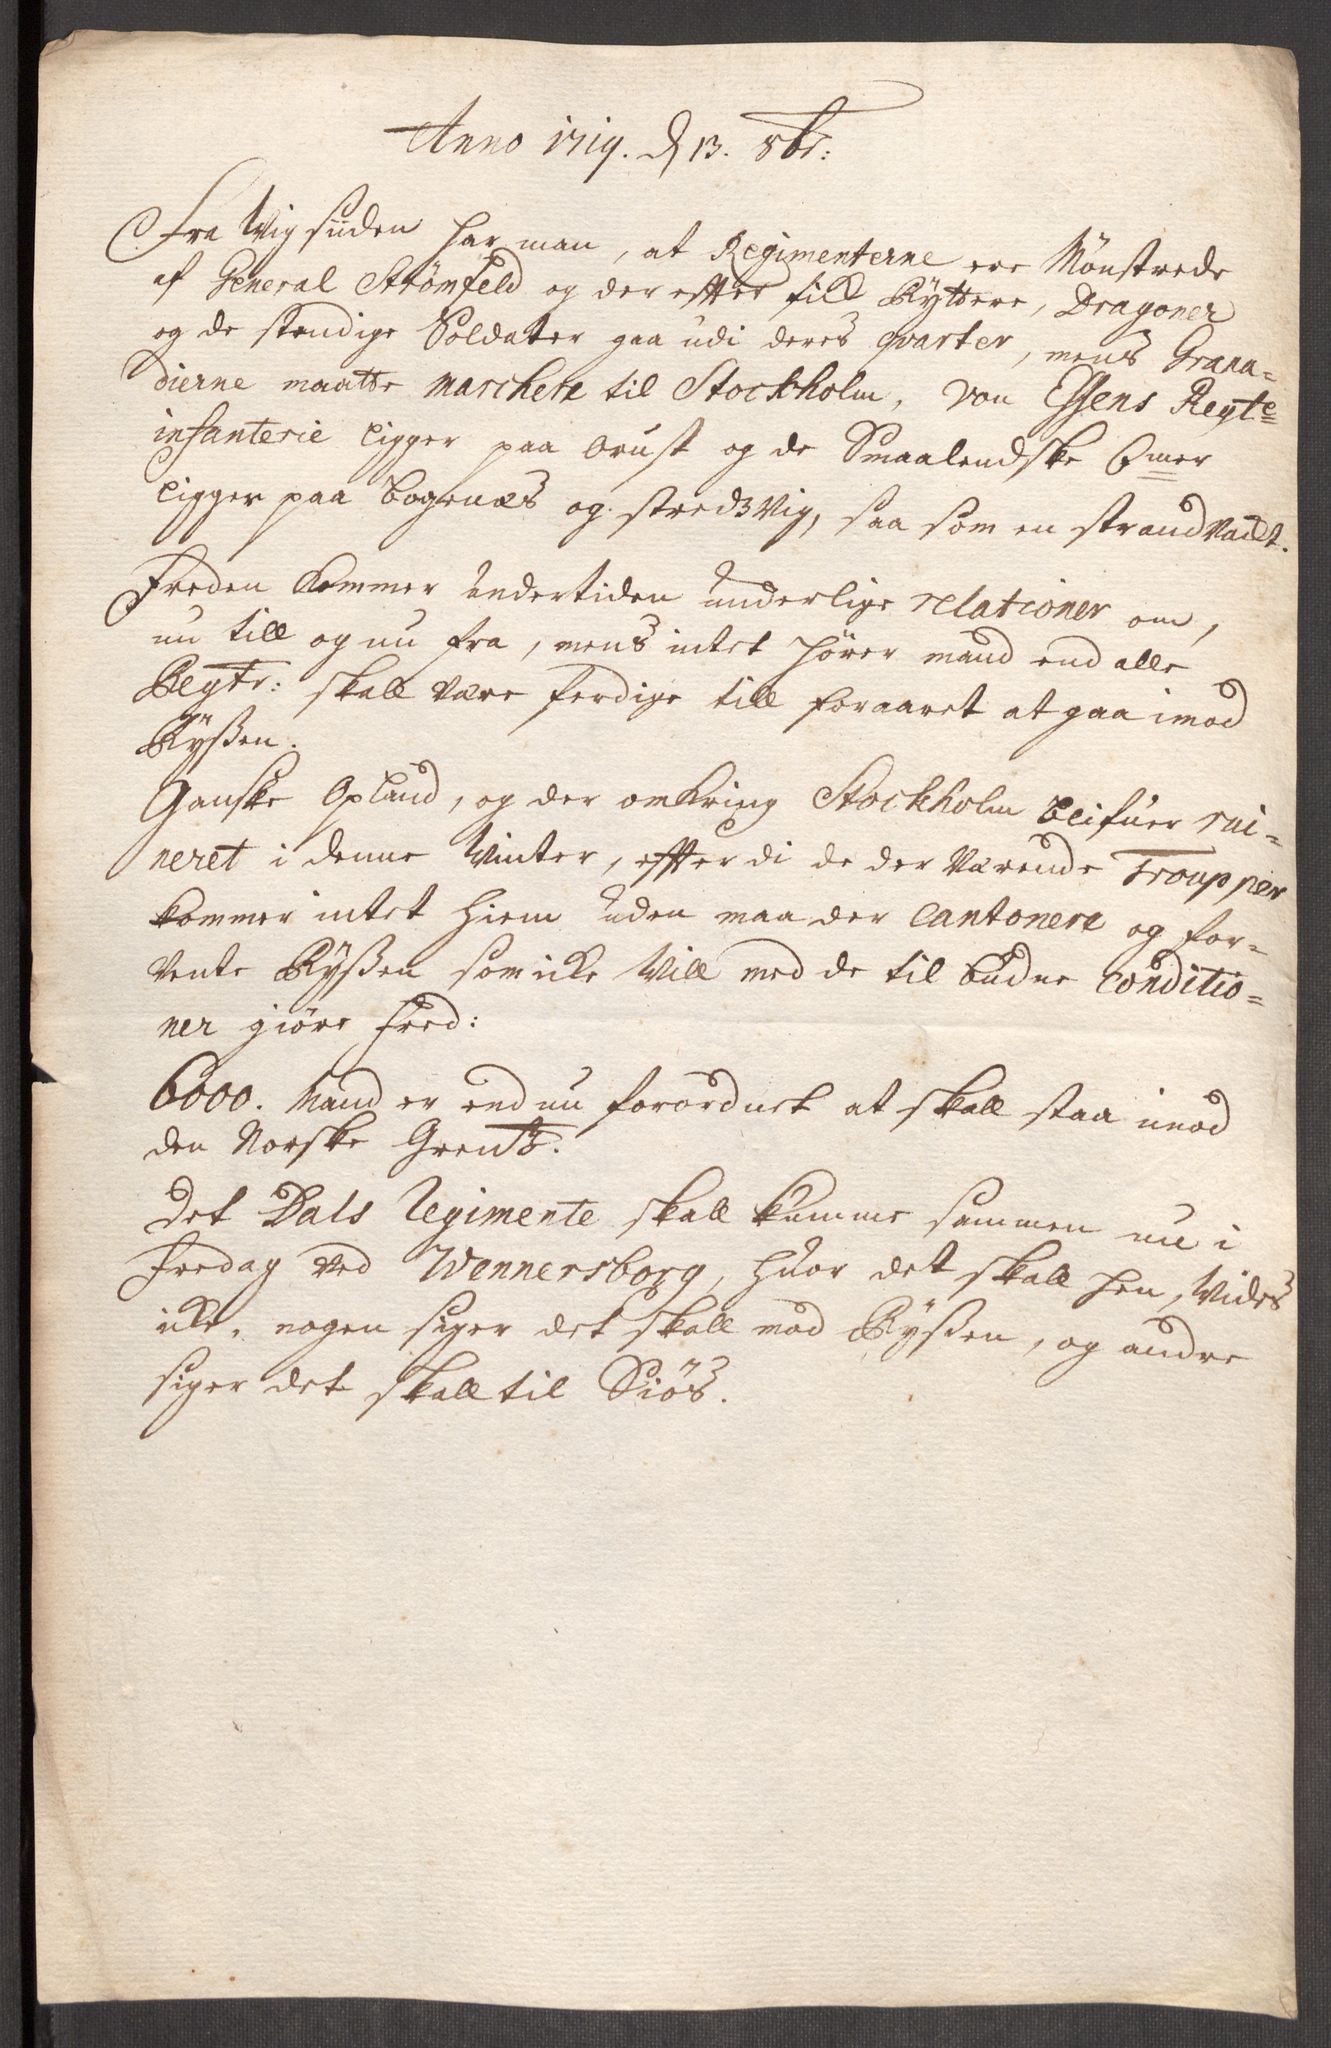 Anno 1719. d 13. 8br:
Fra Wigsiiden har man, at Regimenterne ere Mönstrede
af General Strömfeld og der effter till Ryttere, Dragoner
og de stendige Soldater gaa udi deres qvarter, mens Grana=
dierne maatte marchere til Stockholm, von Essens Regte
infanterie ligger paa Orust og de Smaalendske Comer
ligger paa Bogenæs og stredzvig, saa som en strandvact.
Freden kommer undertiden underlige relationer om,
nu till og nu fra, mens intet hörer mand end alle
Regtr: skall være ferdige till foraaret at gaa imod
Rÿssen.
Ganske Opland, og der omkring Stockholm blifuer rui=
neret i denne Winter, effterdi de der værende Troupper
kommer intet hiem uden maa der cantonere og for=
vente Rÿssen som icke Will med de til budne conditio=
ner giöre fred:
6000. Mand er endnu forordnet at skall staa imod
den Norske Grentz.
Det Dals Regimente skall komme sammen nu i
fredag ved Wennersborg, huor det skall hen, Wides
icke, nogen siger det skall mod Rÿssen, og andre
siger det skall til Siös.